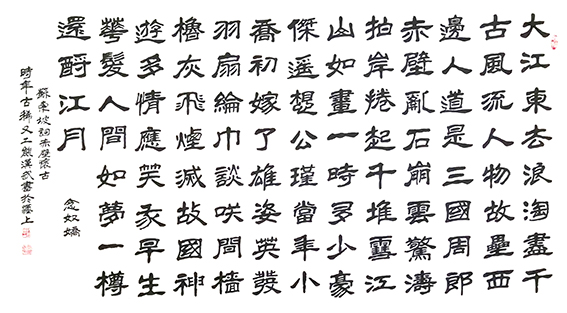 大江東去浪淘盡千
古風流人物故壘西
邊人道是三國周郎
赤壁亂石崩雲驚濤
拍岸捲起千堆雪江
山如畫一時多少豪
傑遙想公瑾當年小
喬初嫁了雄姿英發
羽扇綸巾談咲間檣
櫓灰飛煙滅故國神
遊多情應笑我早生
華髮人間如夢一樽
還酹江月
念奴嬌
蘇東坡詞赤壁懷古
時年古稀又二歲漢武書於滬上